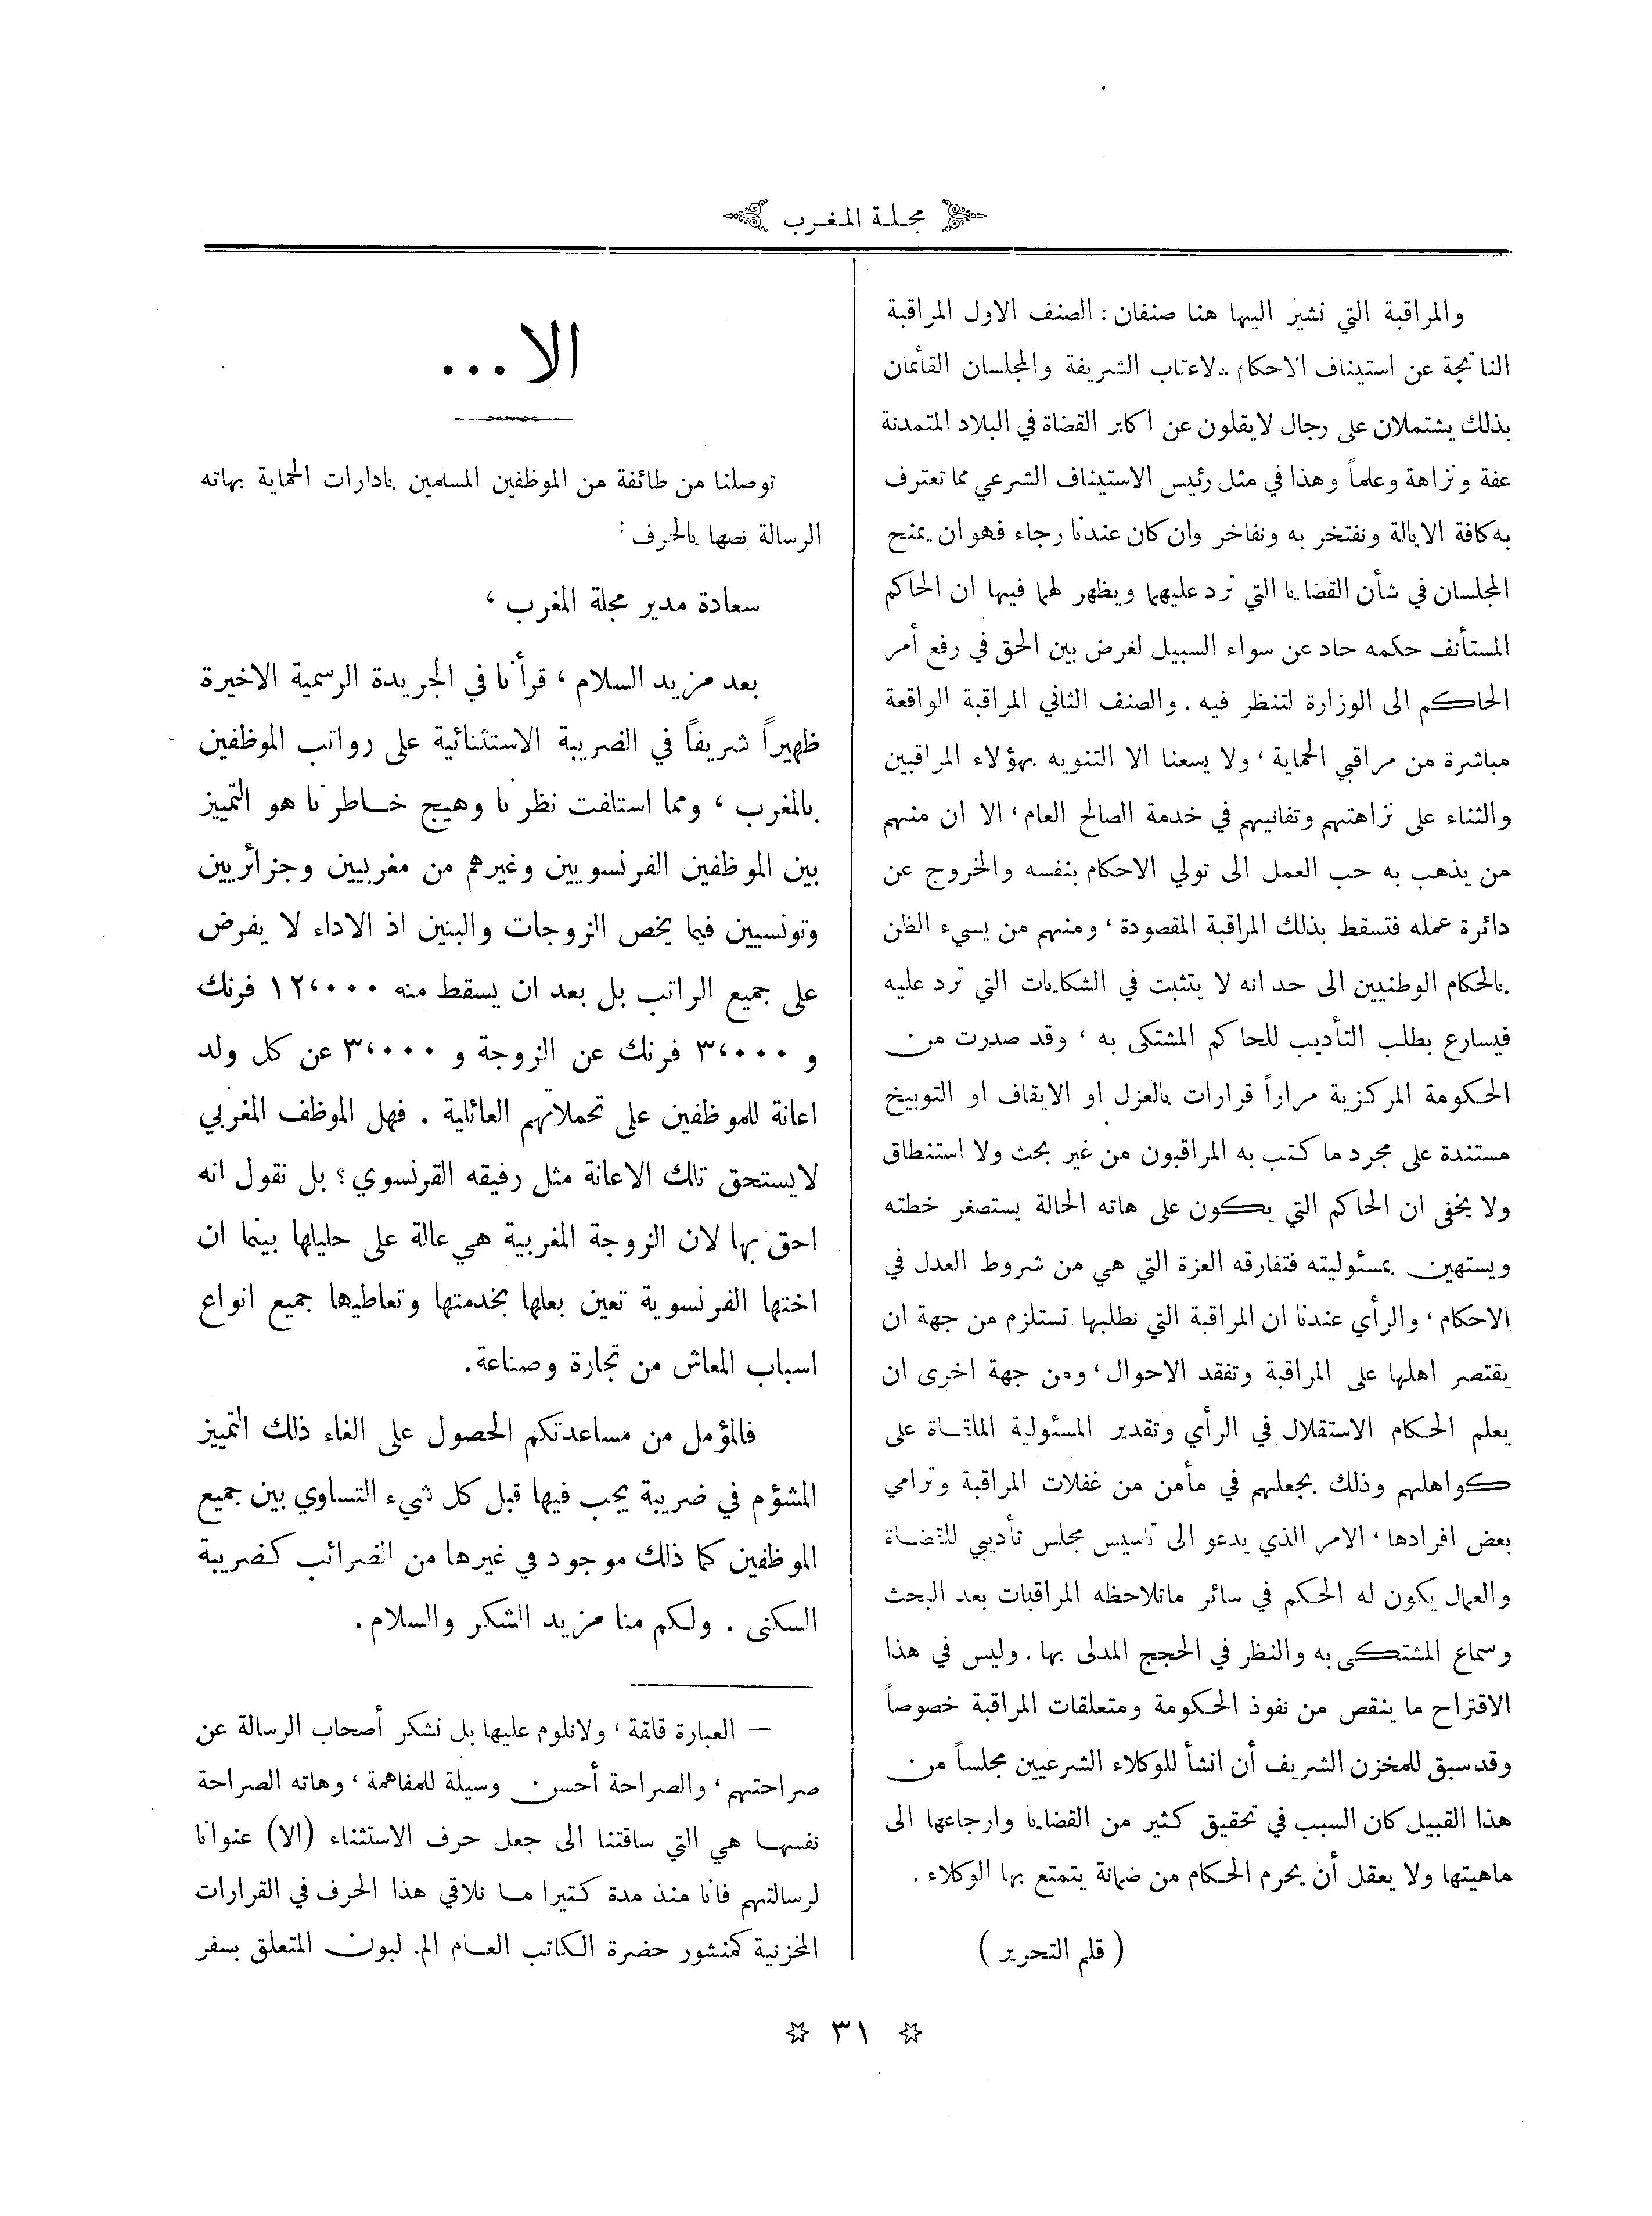 مجلة المغرب
والمراقبة التي نشير اليها هنا صنفان : الصنف الاول المراقبة
الناتجة عن استيناف الاحكام للاعتاب الشريفة والمجلسان القأئمان
بذلك يشتملان على رجال لايقلون عن اكابر القضاة في البلاد المتمدنة
عفة ونزاهة وعلماً وهذا في مثل رئيس الاستيناف الشرعي مما تعترف
به كافة الايالة ونفتخر به ونفاخر وان كان عندنا رجاء فهو ان يمنح
المجلسان في شأن القضايا التي ترد عليهما ويظهر لهما فيها ان الحاكم
المستأنف حكمه حاد عن سواء السبيل لغرض بين الحق في رفع أمر
الحاكم الى الوزارة لتنظر فيه . والصنف الثاني المراقبة الواقعة
مباشرة من مراقبي الحماية ، ولا يسعنا الا التنويه بهؤلاء المراقبين
والثناء على نزاهتهم وتفانيهم في خدمة الصالح العام ، الا ان منهم
من يذهب به حب العمل الى تولي الاحكام بنفسه والخروج عن
دائرة عمله فتسقط بذلك المراقبة المقصودة ، ومنهم من يسيء الظن
بالحكام الوطنيين الى حد انه لا يتثبت في الشكايات التي ترد عليه
فيسارع بطلب التأديب للحاكم المشتكى به ، وقد صدرت من
الحكومة المركزية مراراً قرارات بالعزل او الايقاف او التوبيخ
مستندة على مجرد ما كتب به المراقبون من غير بحث ولا استنطاق
ولا يخفى ان الحاكم التي يكون على هاته الحالة يستصغر خطته
ويستهين بمسئوليته فتفارقه العزة التي هي من شروط العدل في
الاحكام ، والرأي عندنا ان المراقبة التي نطلبها تستلزم من جهة ان
يقتصر اهلها على المراقبة وتفقد الاحوال ، ومن جهة اخرى ان
يعلم الحكام الاستقلال في الرأي وتقدير المسئولية الملقاة على
كواهلهم وذلك بجعلهم في مأمن من غفلات المراقبة وترامي
بعض افرادها ، الامر الذي يدعو الى تاسيس مجلس تأديبي للقضاة
والعمال يكون له الحكم في سائر ماتلاحظه المراقبات بعد البحث
وسماع المشتكى به والنظر في الحجج المدلى بها . وليس في هذا
الاقتراح ما ينقص من نفوذ الحكومة ومتعلقات المراقبة خصوصاً
وقد سبق للمخزن الشريف أن انشأ للوكلاء الشرعيين مجلساً من
هذا القبيل كان السبب في تحقيق كثير من القضايا وارجاعها الى
ماهيتها ولا يعقل أن يحرم الحكام من ضمانة يتمتع بها الوكلاء .
( قلم التحرير )
الا ...
توصلنا من طائفة من الموظفين المسلمين بادارات الحماية بهاته
الرسالة نصها بالحرف :
سعادة مدير مجلة المغرب ،
بعد مزيد السلام ، قرأنا في الجريدة الرسمية الاخيرة
ظهيراً شريفاً في الضريبة الاستثنائية على رواتب الموظفين
بالمغرب ، ومما استلفت نظرنا وهيج خاطرنا هو التمييز
بين الموظفين الفرنسويين وغيرهم من مغربيين وجزائريين
وتونسيين فيما يخص الزوجات والبنين اذ الاداء لا يفرض
على جميع الراتب بل بعد ان يسقط منه ١٢،٠٠٠ فرنك
و ٣،٠٠٠ فرنك عن الزوجة و ٣،٠٠٠ عن كل ولد
اعانة للموظفين على تحملاتهم العائلية . فهل الموظف المغربي
لايستحق تلك الاعانة مثل رفيقه الفرنسوي ؟ بل نقول انه
احق بها لان الزوجة المغربية هي عالة على حليلها بينما ان
اختها الفرنسوية تعين بعلها بخدمتها وتعاطيها جميع انواع
اسباب المعاش من تجارة وصناعة .
فالمؤمل من مساعدتكم الحصول على الغاء ذلك التمييز
المشؤم في ضريبة يجب فيها قبل كل شيء التساوي بين جميع
الموظفين كما ذلك موجود في غيرها من الضرائب كضريبة
السكنى . ولكم منا مزيد الشكر والسلام .
— العبارة قلقة ، ولانلوم عليها بل نشكر أصحاب الرسالة عن
صراحتهم ، والصراحة أحسن وسيلة للمفاهمة ، وهاته الصراحة
نفسها هي التي ساقتنا الى جعل حرف الاستثناء (الا) عنوانا
لرسالتهم فانا منذ مدة كثيرا ما نلاقي هذا الحرف في القرارات
المخزنية كمنشور حضرة الكاتب العام الم. لبون المتعلق بسفر
٣١